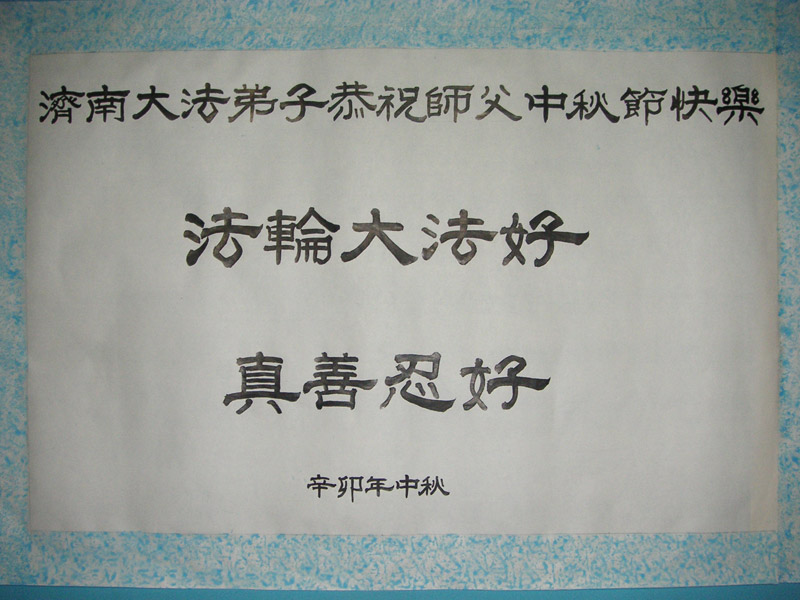 濟南大法弟子恭祝師父中秋節快樂
法輪大法好
真善忍好
辛卯年中秋